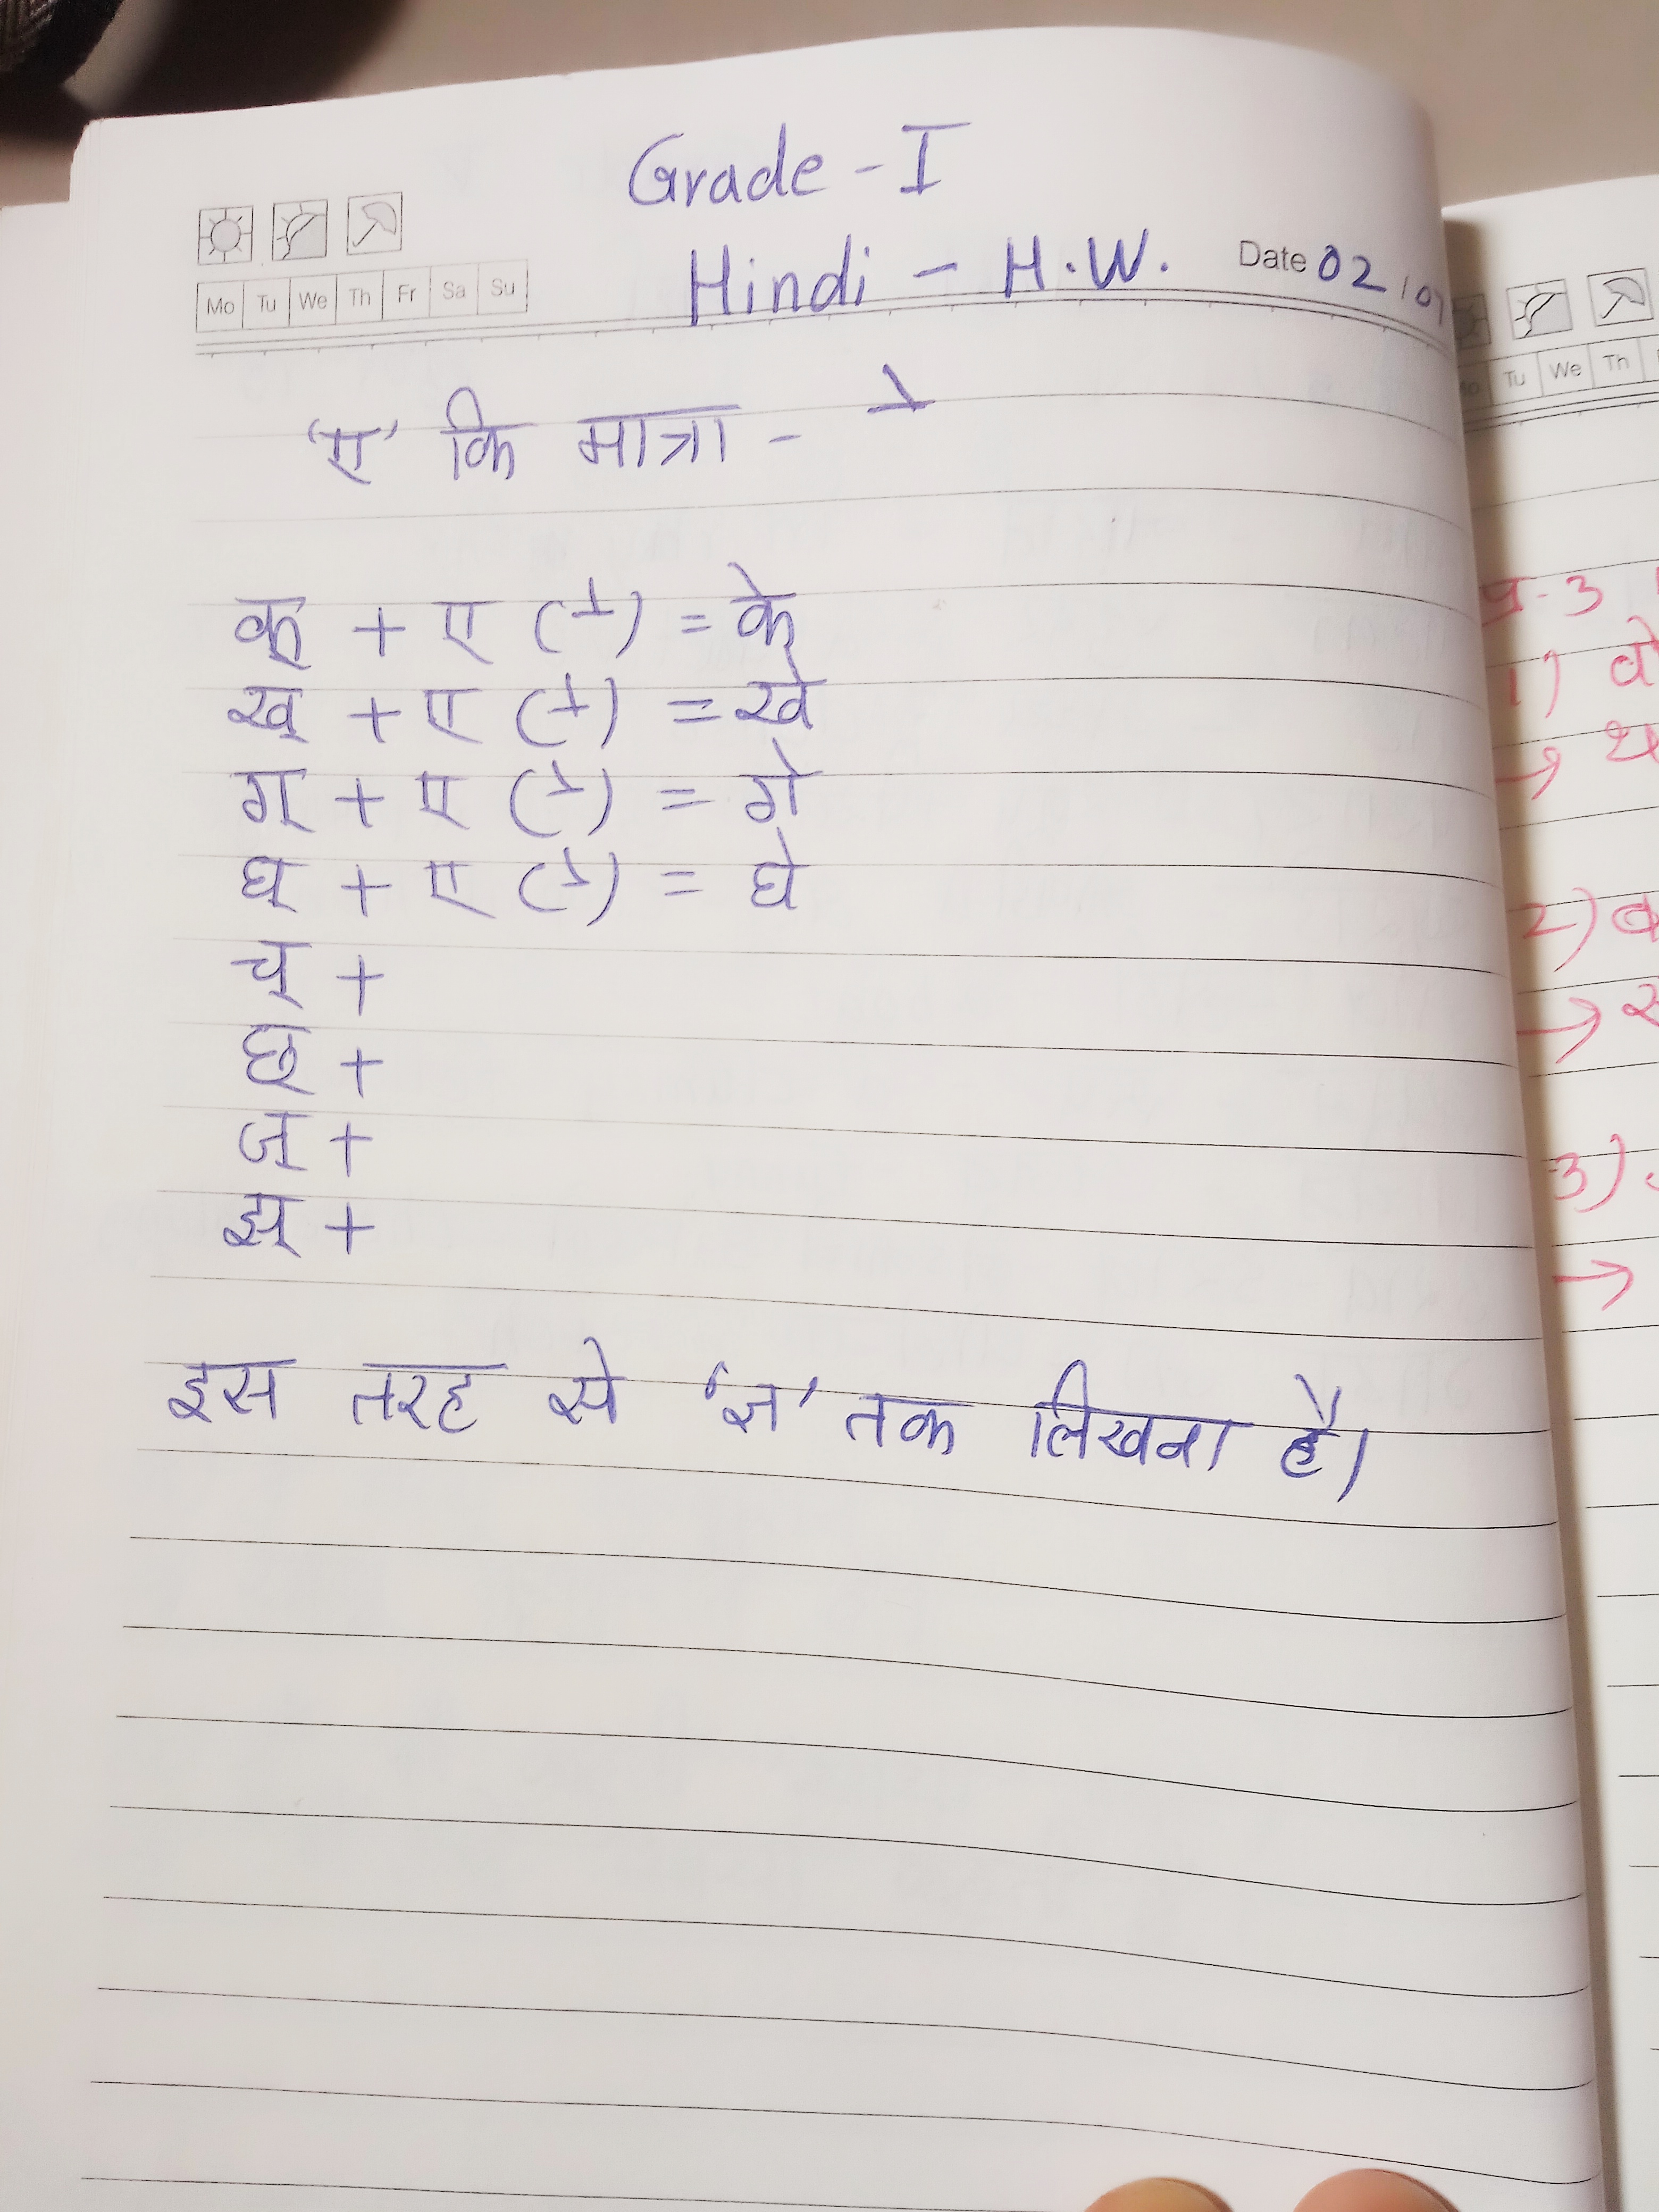 Grade - I
Mo Tu We Th Fr Sa Su
Hindi - H.W. Date 02/07
'ए' कि मात्रा - े
क् + ए (े) = के
ख् + ए (े) = खे
ग् + ए (े) = गे
घ् + ए (े) = घे
च् +
छ् +
ज् +
झ् +
इस तरह से 'ज्ञ' तक लिखना है।
Tu We Th
प्र-3
1)
2)
3)